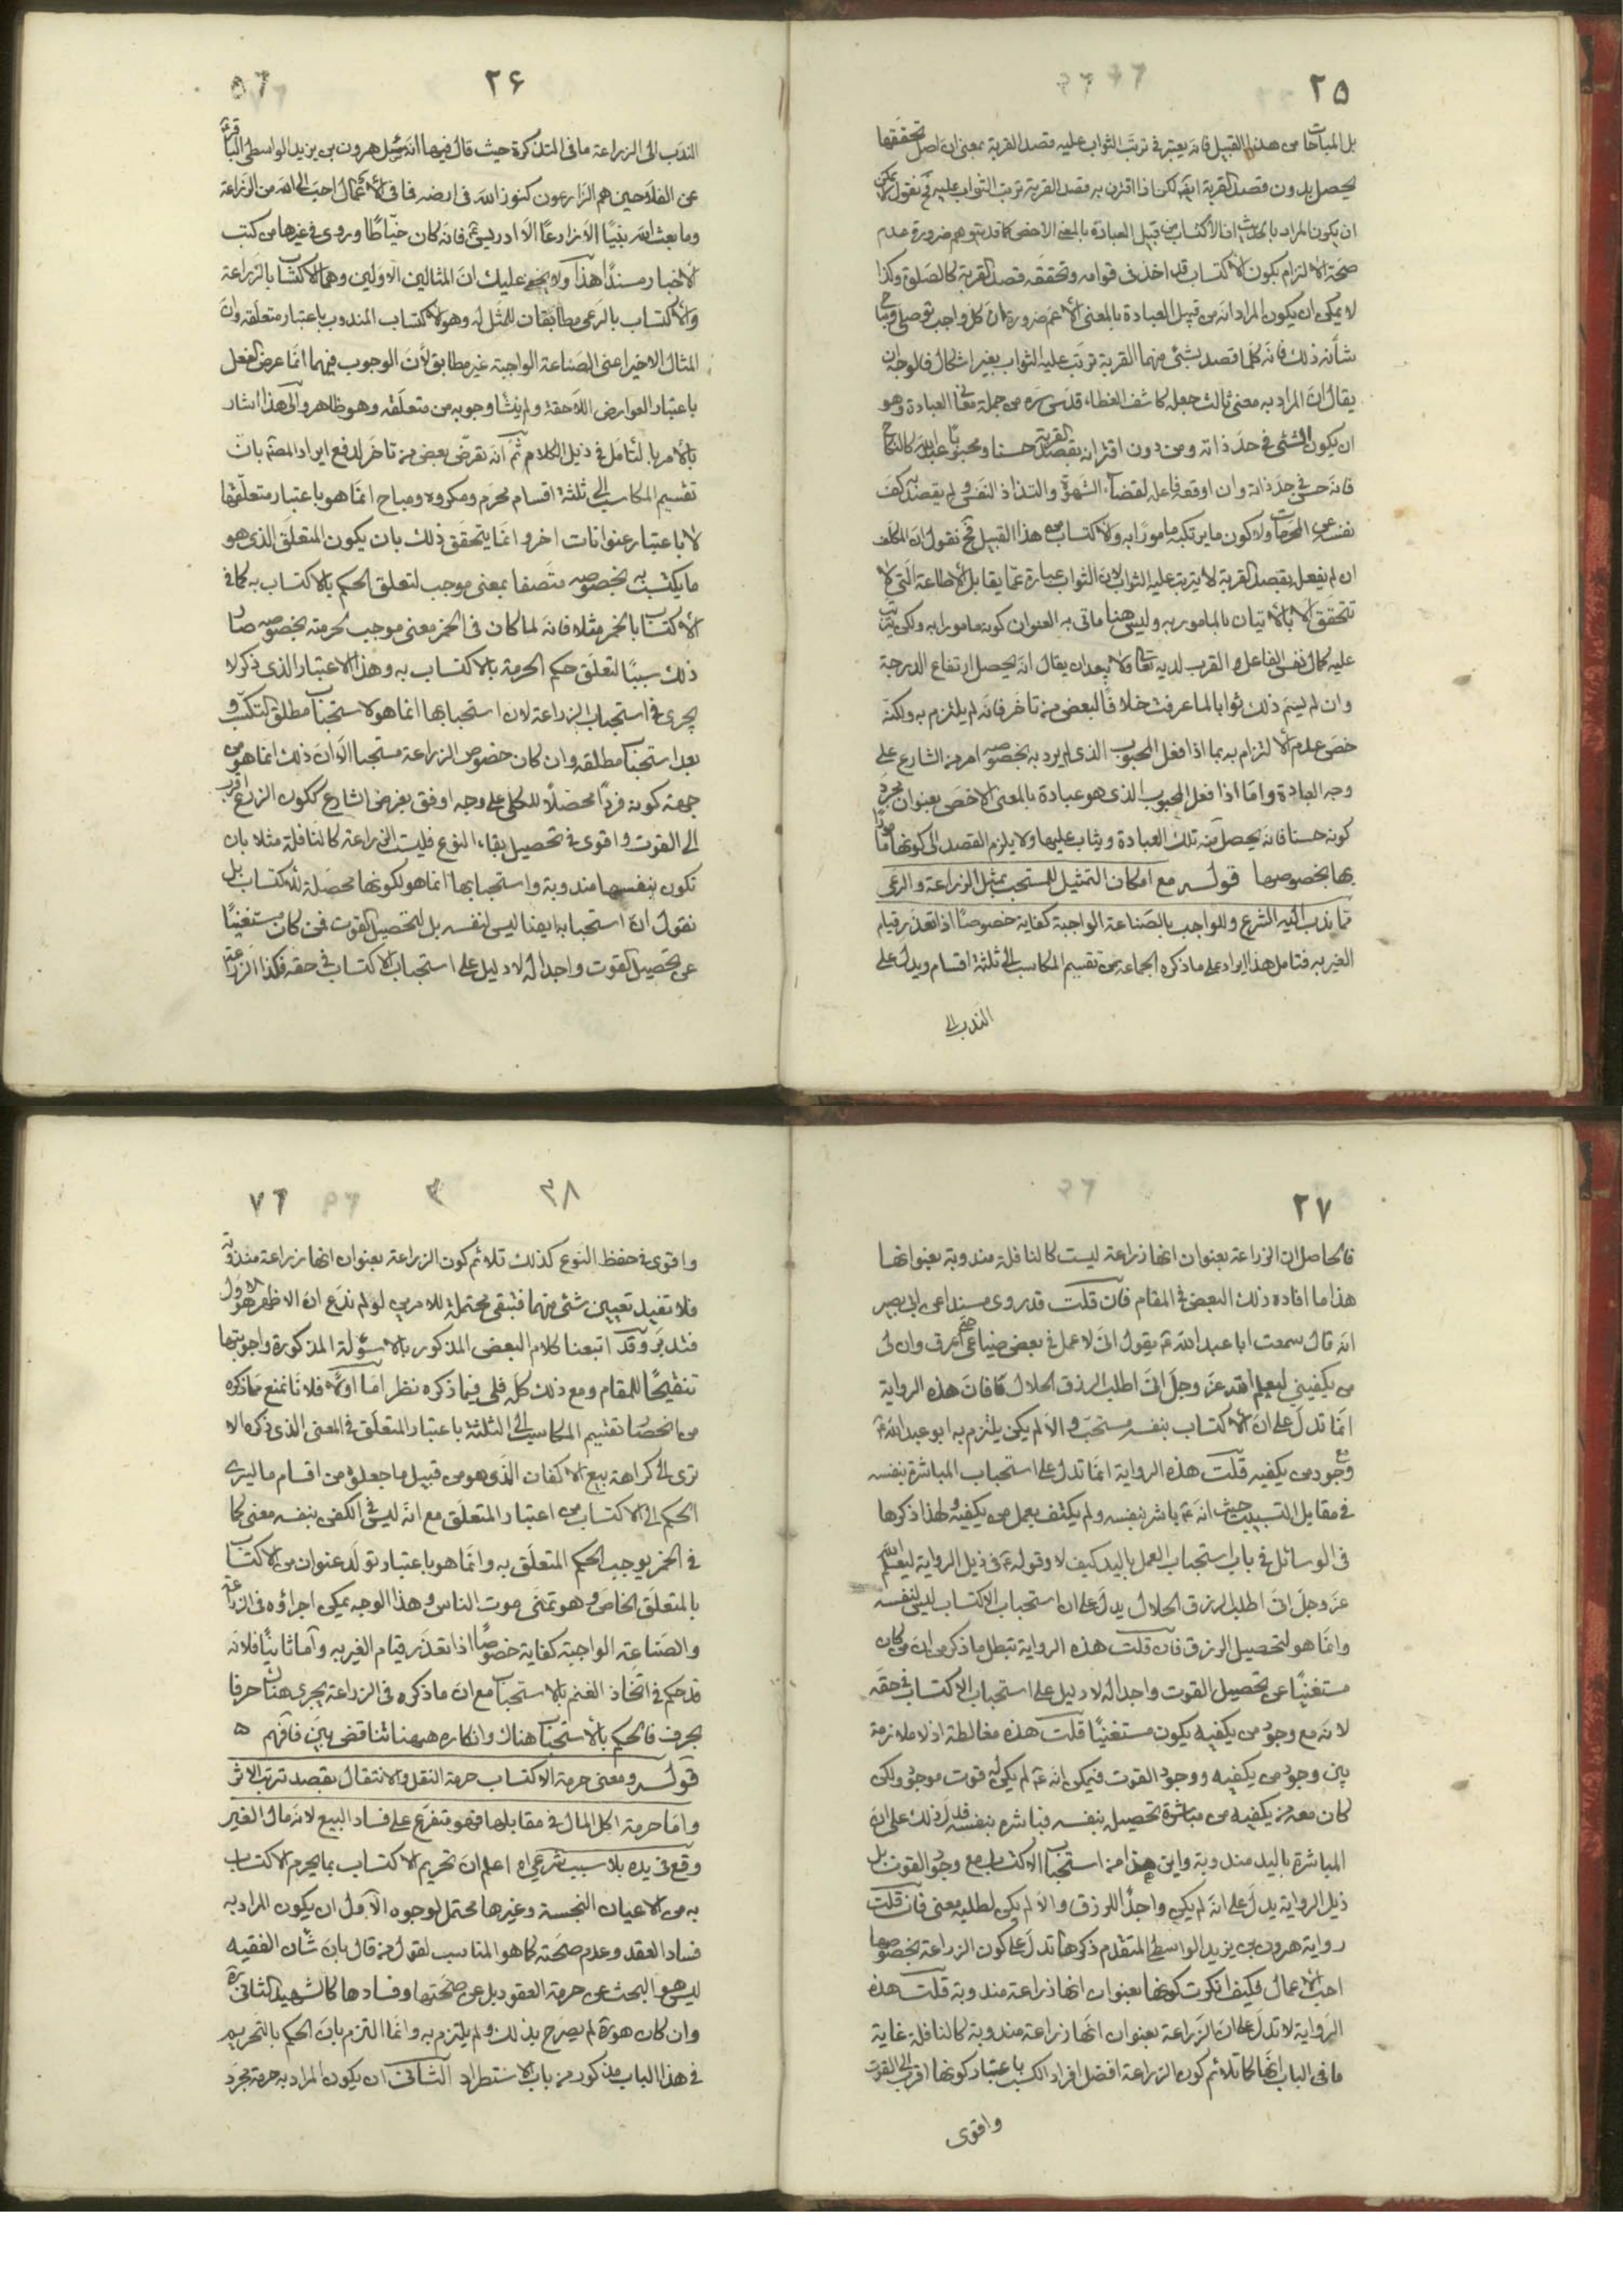 ٢٥
بل المباحات من هذا القبيل فانه يعتبر فى ترتب الثواب عليه قصد القربة بمعنى ان اصل تحققها
يحصل بدون قصد القربة ايضا لكن اذا اقترن به قصد القربة ترتب الثواب عليه فح نقول لا يمكن
ان يكون المراد بالحديث ان الاكتساب من قبيل العبادة بالمعنى الاخص كما قد يتوهم ضرورة عدم
صحة الالتزام بكون الاكتساب قد اخذ فى قوامه وتحققه قصد القربة كالصلوة وكذا
لا يمكن ان يكون المراد انه من قبيل العبادة بالمعنى الاعم ضرورة ان كل واجب توصلى ومباح
شأنه ذلك فانه كلما قصد بشئ منهما القربة ترتب عليه الثواب بغير اشكال فالوجه ان
يقال ان المراد به معنى ثالث جعله كاشف الغطاء قدس سره من جملة معانى العبادة وهو
ان يكون الشئ فى حد ذاته ومن دون اقترانه بقصد القربة حسنا ومحبوبا عند الله كالنكاح
فانه حسن فى حد ذاته وان اوقعه فاعله لقضاء الشهوة والتذاذ النفس ولم يقصد به كف
نفسه عن المحرمات ولا كون ما يرتكبه مامورا به والاكتساب من هذا القبيل فح نقول ان المكلف
ان لم يفعل بقصد القربة لا يترتب عليه الثواب لان الثواب عبارة عما يقابل الاطاعة التى لا
تتحقق الا بالاتيان بالمامور به وليس هنا ماتى به العنوان كونه مامورا به ولكن يترتب
عليه كمال نفس الفاعل والقرب لديه تعالى ولا يبعد ان يقال انه يحصل ارتفاع الدرجة
وان لم يسم ذلك ثوابا لما عرفت خلافا لبعض من تاخر فانه لم يلتزم به ولكنه
خص عدم الالتزام به بما اذا فعل المحبوب الذى لم يرد به بخصوصه امر من الشارع على
وجه العبادة واما اذا فعل المحبوب الذى هو عبادة بالمعنى الاخص بعنوان مجرد
كونه حسنا فانه يحصل منه تلك العبادة ويثاب عليها ولا يلزم القصد الى كونها مامورا
بها بخصوصها قوله مع امكان التمثيل للمستحب بمثل الزراعة والرعى
مما ندب اليه الشرع وللواجب بالصناعة الواجبة كفاية خصوصا اذا تعذر قيام
الغير به فتامل هذا ايراد على ما ذكره الجماعة من تقسيم المكاسب الى ثلثة اقسام ويدل على
الندب الى
٢۶
الندب الى الزراعة ما فى التذكرة حيث قال فيها انه سئل هرون بن يزيد الواسطى الباقر ع
عن الفلاحين هم الزارعون كنوز الله فى ارضه فما فى الاعمال احب الى الله من الزراعة
وما بعث الله نبيا الا زارعا الا ادريس ع فانه كان خياطا وروى فى غيرها من كتب
الاخبار مسندا هذا ولا يخفى عليك ان المثالين الاولين وهما الاكتساب بالزراعة
والاكتساب بالرعى مطابقان للمثل له وهو الاكتساب المندوب باعتبار متعلقه وان
المثال الاخير اعنى الصناعة الواجبة غير مطابق لأن الوجوب فيهما انما عرض لفعل
باعتبار العوارض اللاحقة ولم ينشا وجوبه من متعلقه وهو ظاهر والى هذا اشار
بالأمر بالتأمل فى ذيل الكلام ثم انه تعرض بعض من تاخر لدفع ايراد المصنف بان
تقسيم المكاسب الى ثلثة اقسام محرم ومكروه ومباح انما هو باعتبار متعلقها
لا باعتبار عنوانات اخر وانما يتحقق ذلك بان يكون المتعلق الذى هو
ما يكتسب به بخصوصه متصفا بمعنى موجب لتعلق الحكم بالاكتساب به كما فى
الاكتساب بالخمر مثلا فانه لما كان فى الخمر معنى موجب لحرمته بخصوصه صار
ذلك سببا لتعلق حكم الحرمة بالاكتساب به وهذا الاعتبار الذى ذكر لا
يجرى فى استحباب الزراعة لان استحبابها انما هو لاستحباب مطلق التكسب و
بعد استحباب مطلقه وان كان خصوص الزراعة مستحبا الا ان ذلك انما هو من
جهة كونه فردا محصلا للكلى على وجه اوفق بغرض الشارع ككون الزراعة اقرب
الى القوت واقوى فى تحصيل بقاء النوع فليست الزراعة كالنافلة مثلا بان
تكون بنفسها مندوبة واستحبابها انما هو لكونها محصلة للاكتساب بل
نقول ان استحبابه ايضا ليس لنفسه بل لتحصيل القوت فمن كان مستغنيا
عن تحصيل القوت واجدا له لا دليل على استحباب الاكتساب فى حقه فكذا الزراعة
٢٧
فالحاصل ان الزراعة بعنوان انها زراعة ليست كالنافلة مندوبة بعنوانها
هذا ما افاده ذلك البعض فى المقام فان قلت قد روى مسندا عن ابى بصير
انه قال سمعت ابا عبد الله ع يقول انى لاعمل فى بعض ضياعى حتى اعرق وان لى
من يكفينى ليعلم الله عز وجل انى اطلب الرزق الحلال فان هذه الرواية
انما تدل على ان الاكتساب بنفسه مستحب والا لم يكن يلتزم به ابو عبد الله ع
مع وجود من يكفيه قلت هذه الرواية انما تدل على استحباب المباشرة بنفسه
فى مقابل التسبيب حيث انه ع باشر بنفسه ولم يكتف بعمل من يكفيه ولهذا ذكرها
فى الوسائل فى باب استحباب العمل باليد كيف لا وقوله ع فى ذيل الرواية ليعلم الله
عز وجل انى اطلب الرزق الحلال يدل على ان استحباب الاكتساب ليس لنفسه
وانما هو لتحصيل الرزق فان قلت هذه الرواية تبطل ما ذكر من ان من كان
مستغنيا عن تحصيل القوت واجدا له لا دليل على استحباب الاكتساب فى حقه
لانه مع وجود من يكفيه يكون مستغنيا قلت هذه مغالطة اذ لا ملازمة
بين وجود من يكفيه ووجود القوت فيمكن انه ع لم يكن له قوت موجود ولكن
كان معه من يكفيه من مباشرة تحصيله بنفسه فباشره بنفسه فدل ذلك على ان
المباشرة باليد مندوبة واين هذا من استحباب الاكتساب مع وجود القوت بل
ذيل الرواية يدل على انه لم يكن واجدا للرزق والا لم يكن لطلبه معنى فان قلت
رواية هرون بن يزيد الواسطى المتقدم ذكرها تدل على كون الزراعة بخصوصها
احب الاعمال فكيف انكرت كونها بعنوان انها زراعة مندوبة قلت هذه
الرواية لا تدل على ان الزراعة بعنوان انها زراعة مندوبة كالنافلة غاية
ما فى الباب انها كما تلائم كون الزراعة افضل افراد الكسب باعتبار كونها اقرب الى القوت
واقوى
٣٨
واقوى فى حفظ النوع كذلك تلائم كون الزراعة بعنوان انها زراعة مندوبة
فلا تفيد تعيين شئ منهما فتبقى محتملة للامرين لو لم ندع ان الاظهر هو الاول
فتدبر وقد اتبعنا كلام البعض المذكور بالاسؤلة المذكورة واجوبتها
تنقيحا للمقام ومع ذلك كله فلى فيما ذكره نظر اما اولا فلانا نمنع مما ذكره
من انحصار تقسيم المكاسب الى الثلثة باعتبار المتعلق فى المعنى الذى ذكره الا
ترى الى كراهة بيع الاكفان الذى هو من قبيل ما جعلوه من اقسام ما ليسرى
الحكم الى الاكتساب من اعتبار المتعلق مع انه ليس فى الكفن بنفسه معنى كما
فى الخمر يوجب الحكم المتعلق به وانما هو باعتبار تولد عنوان من الاكتساب
بالمتعلق الخاص وهو تمنى موت الناس وهذا الوجه يمكن اجراؤه فى الزراعة
والصناعة الواجبة كفاية خصوصا اذا تعذر قيام الغير به واما ثانيا فلانه
قد حكم فى اتخاذ الغنم بالاستحباب مع ان ما ذكره فى الزراعة يجرى هناك حرفا
بحرف فالحكم بالاستحباب هناك وانكاره هيهنا تناقض بين فافهم
قوله ومعنى حرمة الاكتساب حرمة النقل والانتقال بقصد ترتب الاثر
واما حرمة اكل المال فى مقابلها فهو متفرع على فساد البيع لانه مال الغير
وقع فى يده بلا سبب شرعى اه اعلم ان تحريم الاكتساب بما يحرم الاكتساب
به من الاعيان النجسة وغيرها محتمل لوجوه الاول ان يكون المراد به
فساد العقد وعدم صحته كما هو المناسب لقول من قال بان شأن الفقيه
ليس هو البحث عن حرمة العقود بل عن صحتها وفسادها كالشهيد الثانى ره
وان كان هو ره لم يصرح بذلك ولم يلتزم به وانما التزم بان الحكم بالتحريم
فى هذا الباب مذكور من باب الاستطراد الثانى ان يكون المراد به حرمة مجرد